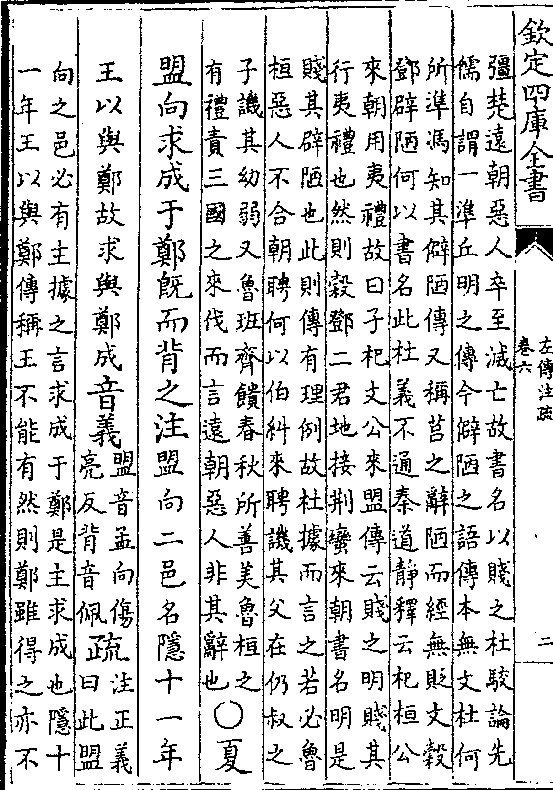 欽定四庫全書
左傳注疏
卷六
二
彊楚遠朝惡人卒至滅亡故書名以賤之杜駁論先
儒自謂一準丘明之傳今僻陋之語傳本無文杜何
所準馮知其僻陋傳又稱莒之辭陋而經無貶文穀
鄧辟陋何以書名此杜義不通秦道靜釋云杞桓公
來朝用夷禮故曰子杞文公來盟傳云賤之明賤其
行夷禮也然則穀鄧二君地接荆蠻來朝書名明是
賤其辟陋也此則傳有理例故杜據而言之若必魯
桓惡人不合朝聘何以伯糾來聘譏其父在仍叔之
子譏其幼弱又魯班齊饋春秋所善美魯桓之
有禮責三國之來伐而言遠朝惡人非其辭也○夏
盟向求成于鄭既而背之注盟向二邑名隱十一年
王以與鄭故求與鄭成音義盟音孟向傷
亮反背音佩疏注正義
曰此盟
向之邑必有主據之言求成于鄭是主求成也隱十
一年王以與鄭傳稱王不能有然則鄭雖得之亦不